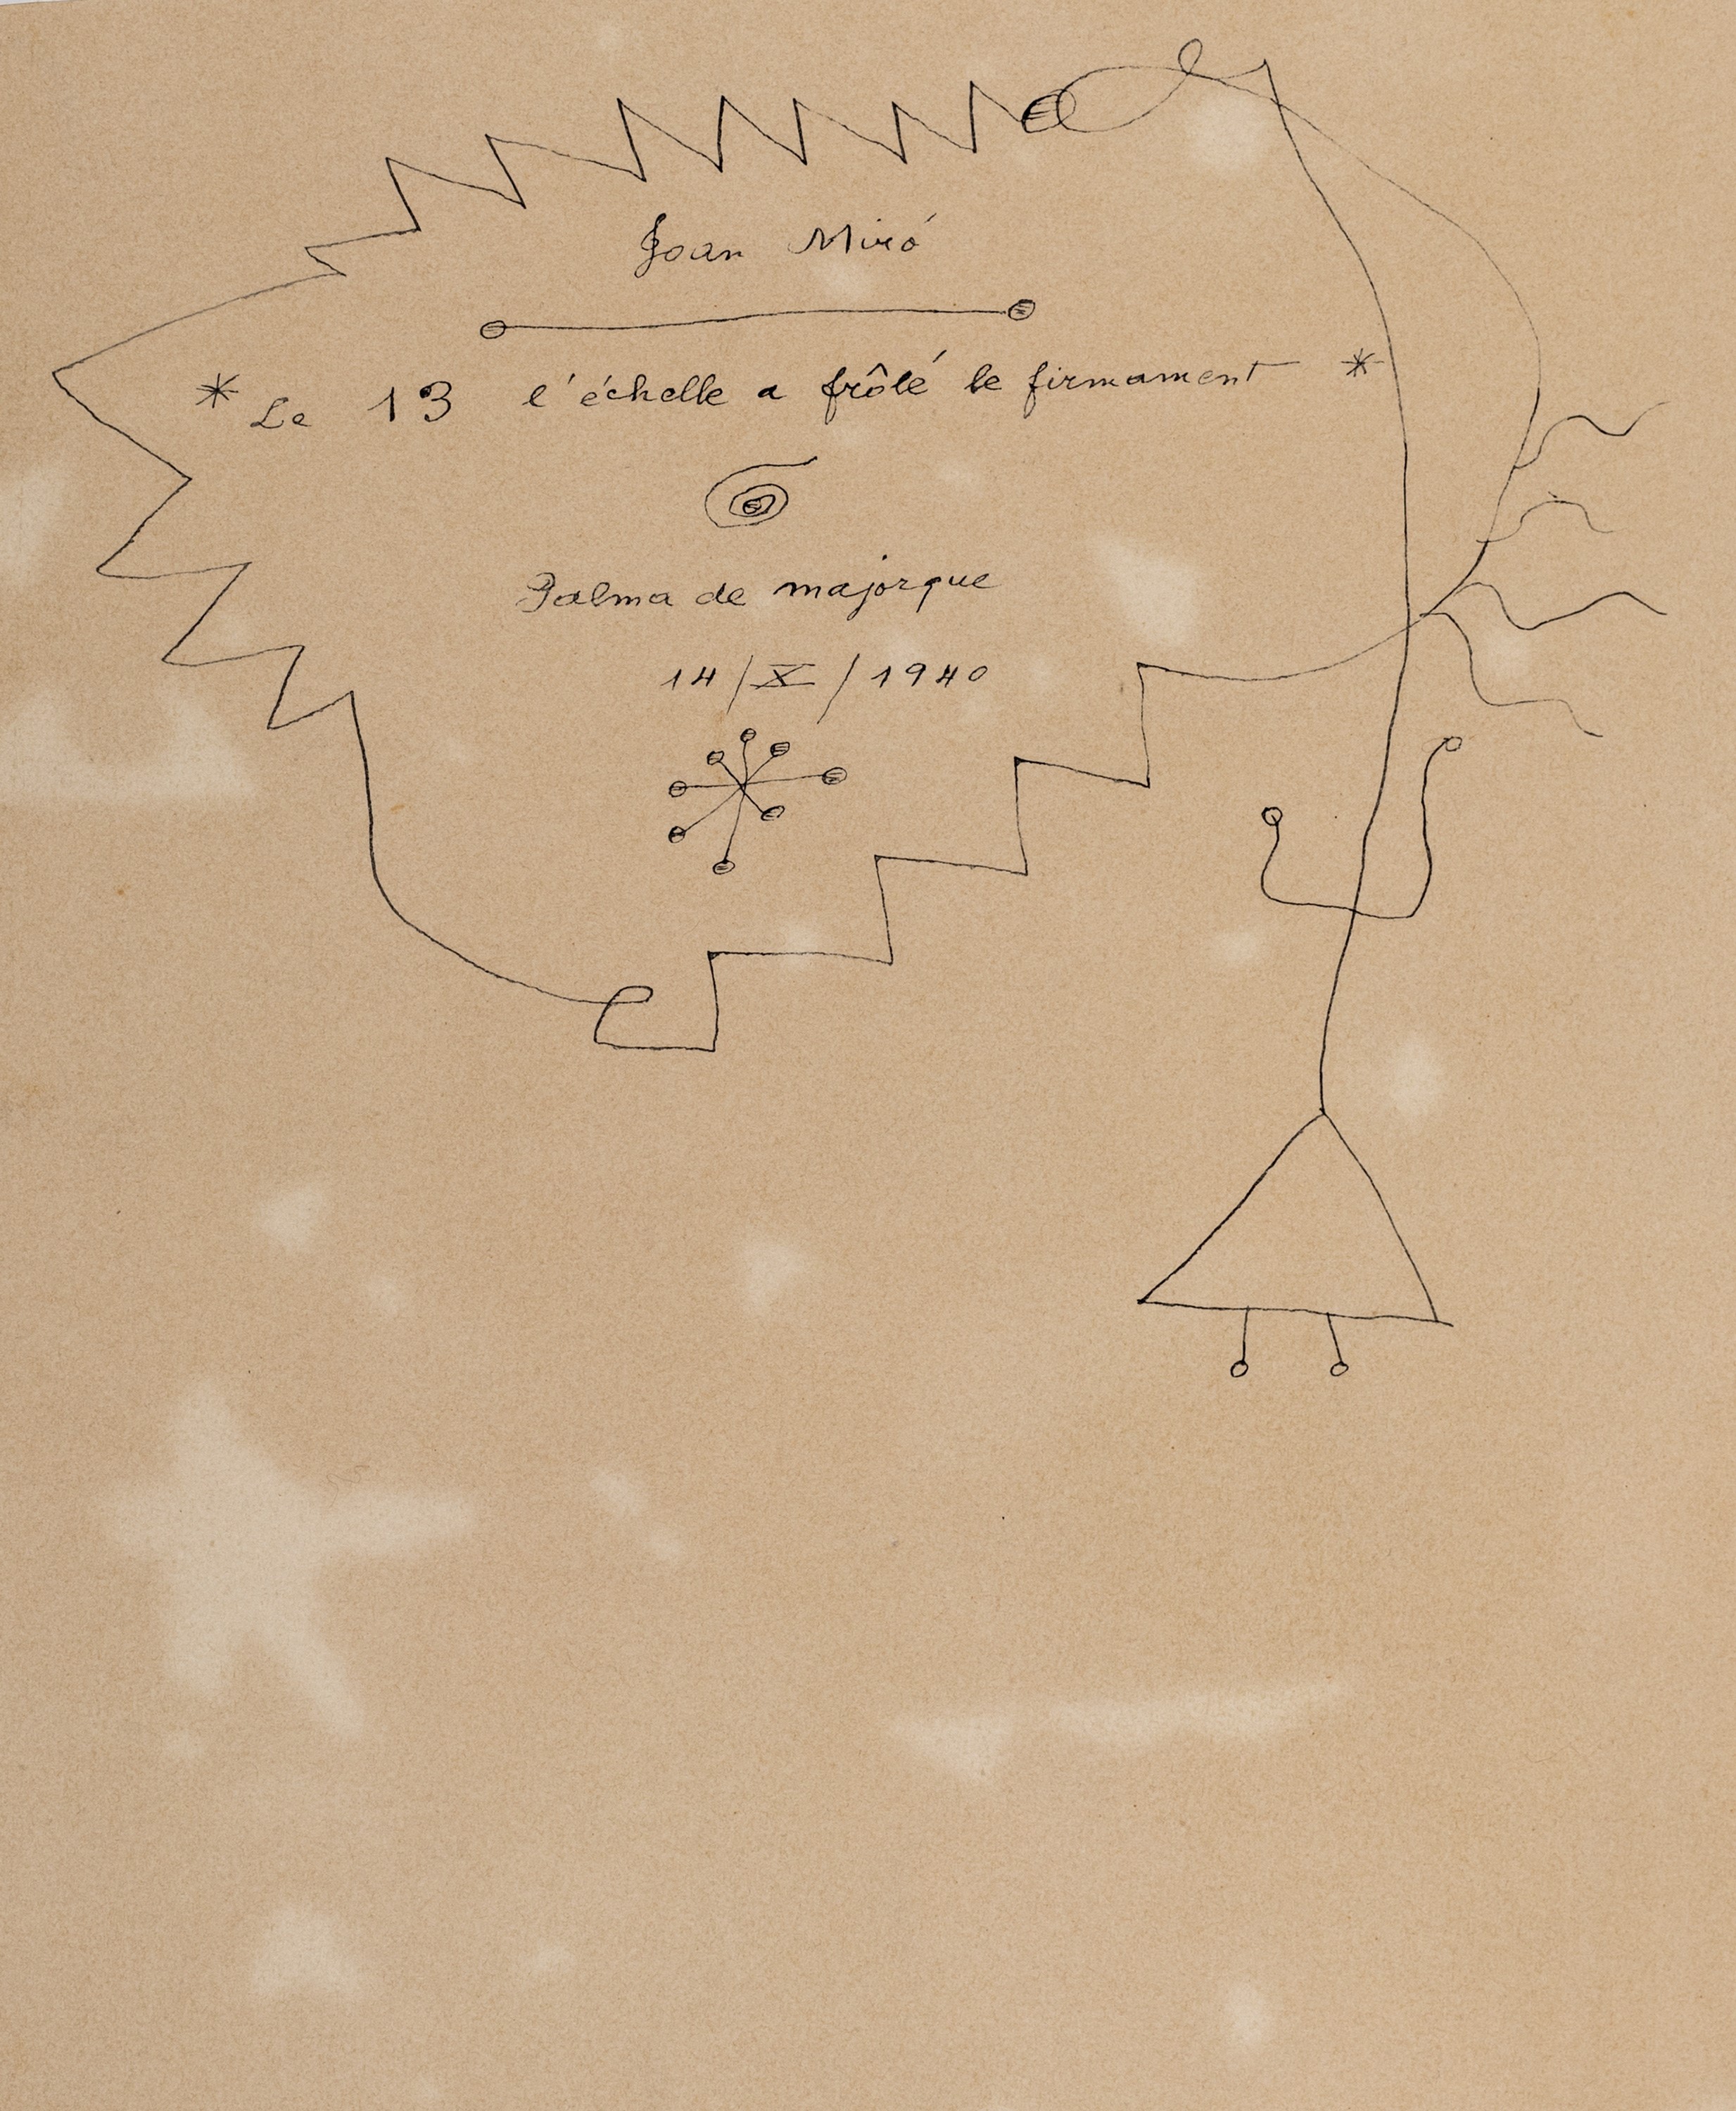 Joan Miró
* Le 13 l'échelle a frôlé le firmament *
Palma de majorque
14/X/1940